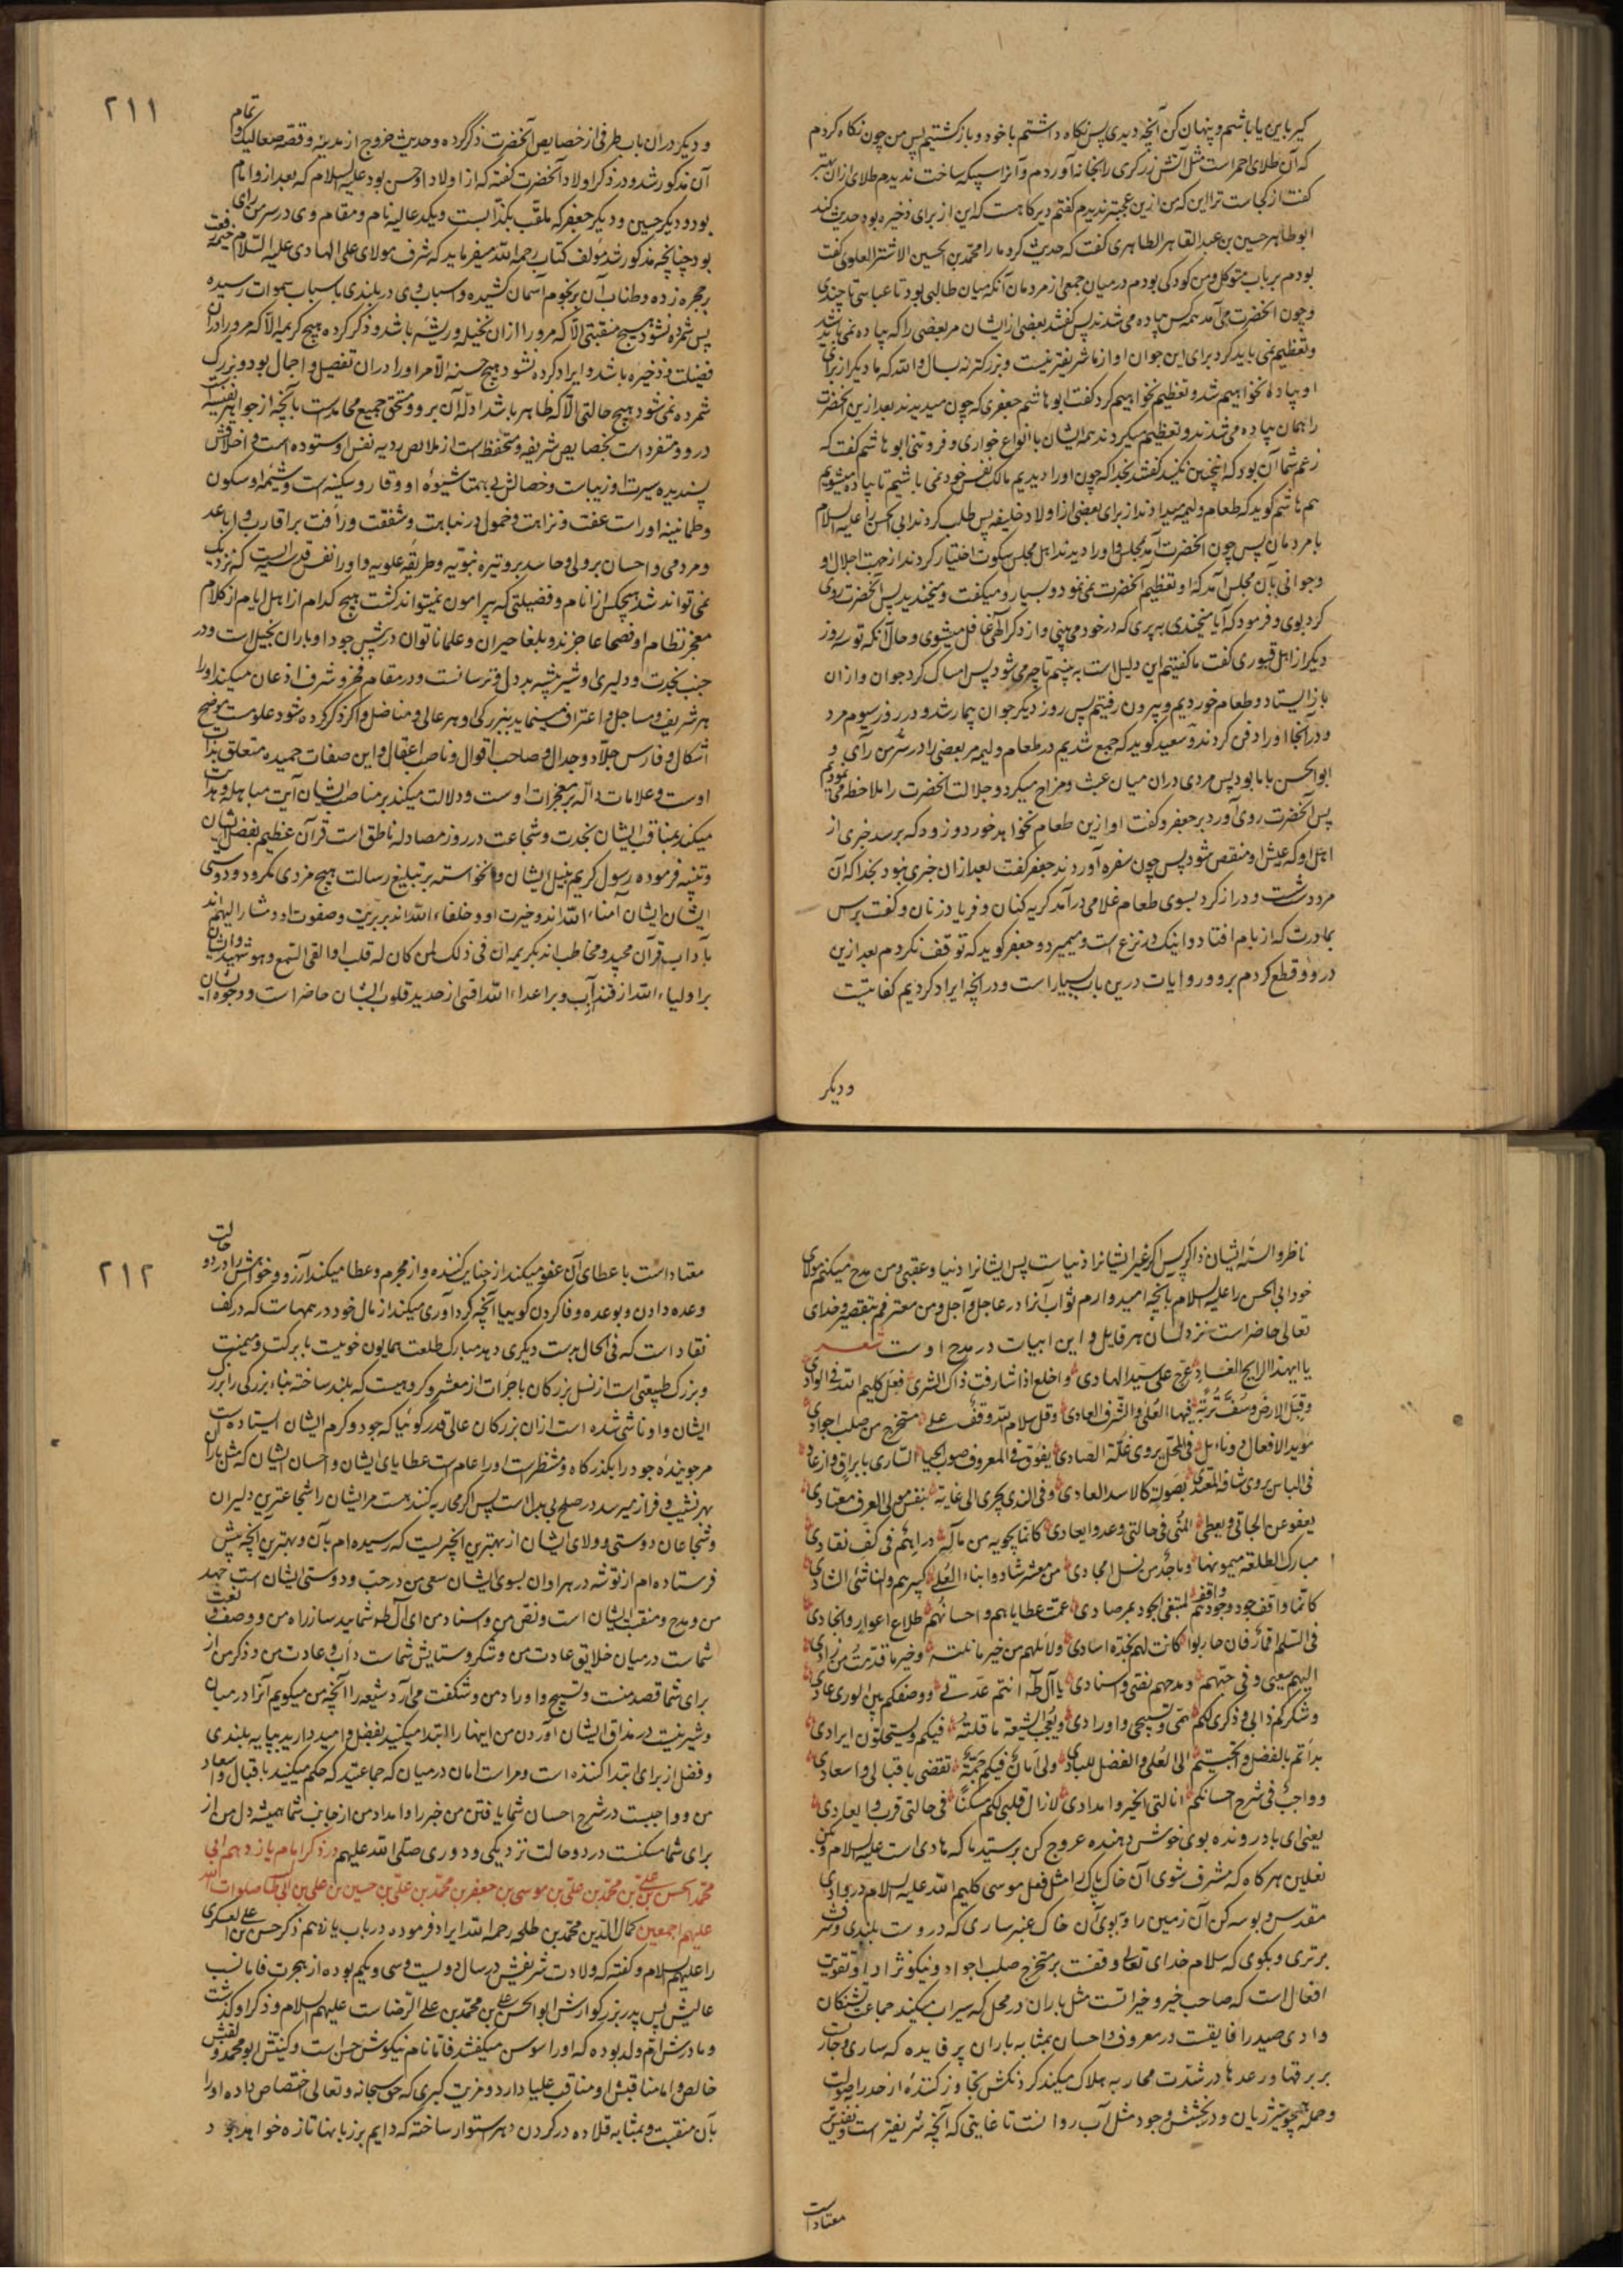 گیر با این یا باشم و پنهان کن آنچه دیدی پس نگاه داشتم با خود و بازگشتیم پس من چون نگاه کردم
که آن طلای احمر است مثل آتش زرگری را بخانه آوردم و آنرا سبیکه ساخت ندیدم طلای ازان بهتر
گفت از کجاست ترا این که من ازین عجبتر ندیدم گفتم دیرگاهست که این از برای ذخیره بود حدیث کند
ابوطاهر حسین بن عبدالقاهر الطاهری گفت که حدیث کرد مارا محمد بن الحسین الاشتر العلوی گفت
بودم بر باب متوکل و من کودکی بودم در میان جمعی از مردمان آنکه میان طالبی بود تا عباسی تا جندی
و چون آنحضرت می‌آمد همه کس پیاده می شدند پس گفتند بعضی از ایشان مر بعضی را که پیاده نمی باید شد
و تعظیم نمی باید کرد برای این جوان او از ما شریفتر نیست و بزرگتر نه بسال والله که ما دیگر از برای
او پیاده نخواهیم شد و تعظیم نخواهیم کرد گفت ابوهاشم جعفری که چون میدیدند بعد ازین آنحضرت
را همان پیاده می شدند و تعظیم میکردند همه ایشان با انواع خواری و فروتنی ابوهاشم گفت که
زعم شما آن بود که اینچنین نکنید گفتند بخدا که چون اورا دیدیم مالک نفس خود نمی باشیم تا پیاده میشویم
هم هاشم گوید که طعام ولیمه میدادند از برای بعضی از اولاد خلیفه پس طلب کردند ابی الحسن را علیه السلام
با مردمان پس چون آنحضرت آمد مجلس و اورا دیدند اهل مجلس سکوت اختیار کردند از جهت اجلال او
و جوانی بآن مجلس آمد که او تعظیم آنحضرت نمی نمود و بسیار میگفت و میخندید پس آنحضرت روی
کرد بوی و فرمود که آیا میخندی به پری که در خود می بینی و از ذکر الهی غافل میشوی و حال آنکه تو سه روز
دیگر از اهل قبوری گفت ما گفتیم این دلیل است به بینیم تا چه می شود پس امساک کرد جوان و ازان
باز ایستاد و طعام خوردیم و بیرون رفتیم پس روز دیگر جوان بیمار شد و در روز سیوم مرد
و در آنجا اورا دفن کردند و سعید گوید که جمع شدیم در طعام ولیمه مر بعضی را در سر من رآی و
ابوالحسن با ما بود پس مردی دران میان عبث و مزاح میکرد و جلالت آنحضرت را ملاحظه نمی نمود
پس آنحضرت روی آورد بر جعفر و گفت او ازین طعام نخواهد خورد و زود که برسد خبری از
اهل او که عیش او منغص شود پس چون سفره آوردند جعفر گفت بعد ازان خبری نبود بخدا که آن
مرد دست دراز کرد بسوی طعام غلامی درآمد گریه کنان و فریاد زنان و گفت برس
بمادرت که از بام افتاد و اینک در نزع است و میمیرد و جعفر گوید که توقف نکردم بعد ازین
در وو قطع کردم برو و روایات درین باب بسیار است و در آنچه ایراد کردیم کفایتست
و دیگر
۲۱۱
و دیگر دران باب طرفی از خصایص آنحضرت ذکر کرده و حدیث خروج از مدینه و قصه صعالیک و تمام
آن مذکور شد و در ذکر اولاد آنحضرت گفته که از اولاد او حسن بود علیه السلام که بعد از و امام
بود و دیگر حسین و دیگر جعفر که ملقب بکذابست و یکدی عالیه نام و مقام وی در سر من رای
بود چنانچه مذکور شد مؤلف کتاب رحمه الله میفرماید که شرف مولای علی الهادی علیه السلام خیمه رفعت
بر مجره زده و طناب آن بر نجوم آسمان کشیده و اسباب وی در بلندی باسباب سموات رسیده
پس شمرده نشود هیچ منقبتی الا که مرو را ازان نخیله و ریشه باشد و ذکر کرده هیچ کریمه الا که مرورا دران
فضیلت و ذخیره باشد و ایراد کرده نشود هیچ حسنه الا مر اورا دران تفصیل و اجمال بود و بزرگ
شمرده نمی شود هیچ حالتی الا که ظاهر باشد ادله آن برو و مستحق جمیع محامدست بآنچه از جواهر نفیسه
در وو متفرد است بخصایص شریفه و متحفظ است از ملایص ردیه نفس او ستوده است و اخلاقش
پسندیده سیرت او زیباست و خصالش بی همتا شیوه او وقار و سکینه است و شیمه او سکون
و طمانینه اوراست عفت و نزاهت و خمول در نباهت و شفقت و رأفت بر اقارب و اباعد
و مردمی و احسان بر ولی و حاسد بر وتیره نبویه و طریقه علویه و اورا نفس قدسیست که نزدیک
نمی تواند شد هیچکس از انام و فضیلتی که پیرامون نمیتواند گشت هیچ کدام از اهل ایام از کلام
معجز نظام او فصحا عاجزند و بلغا حیران و علما ناتوان در پیش جود او باران بخیلست و در
جنب نجدت و دلیری او شیر بیشه بددل و ترسانست و در مقام فخر و شرف اذعان میکند اورا
هر شریف و ساجل و اعتراف مینماید ببزرگی او هر عالی و مناضل و اگر ذکر کرده شود علومست موضح
اشکال و فارس جلاد و جدال و صاحب اقوال و ناصب اعتقال و این صفات حمیده متعلق بذات
اوست و علامات داله بر معجزات اوست و دلالت میکند بر مناصب ایشان آیت مباهله و نداست
میکند بمناقب ایشان نجدت و شجاعت در روز مصادله ناطق است قرآن عظیم بفضل ایشان
و تنبیه فرموده رسول کریم بنیل ایشان و نخواسته بر تبلیغ رسالت هیچ مزدی مگر ودود دوستی
ایشان ایشان امناء الله اند و خیرت او و خلفاء الله اند بر بریت و صفوت او و مشار الیهم اند
بآداب قرآن مجید و مخاطب اند بکریمه ان فی ذلک لمن کان له قلب او القی السمع وهو شهید و ایشان
بر اولیاء الله از قند آب و بر اعداء الله اقسی از حدید قلوب ایشان حاضر است و وجوه ایشان
ناظر و السنه ایشان ذاکر پس اگر غیر ایشانرا دنیاست پس ایشانرا دنیا و عقبی و من مدح میکنم مولای
خود ابی الحسن را علیه السلام بآنچه امیدوارم ثواب آنرا در عاجل و آجل و من معترفم بتقصیر و خدای
تعالی حاضر است نزد لسان هر قایل و این ابیات در مدح اوست شعر
یا ایهذا الرایح الغادی عرج علی سیدنا الهادی و اخلع اذا شارفت ذاک الثری فعل کلیم الله فی الوادی
و قبل الارض و سف تربة فیها العلی و الشرف العادی و قل سلام الله وقف علی مستخرج من صلب اجوادی
مؤید الافعال ذو نائل فی المحل یروی غلة الصادی یفوق فی المعروف صوب الحیا الساری بابراق و ارعاد
فی الباس یردی شافة المعتدی بصولة کالاسد العادی و فی الندی یجری الی غایة بنفس مولی العرف معتادی
یعفو عن الجانی و یعطی المنی فی حالتی وعد و ایعادی کانما یحویه من ماله دراهم فی کف نقادی
مبارک الطلعة میمونها و ماجد من نسل امجادی من معشر شادوا بناء العلی کبیرهم و الناشئ الشادی
کانما واقف جود و جودهم واقف لمبتغی الجود بمرصادی عمت عطایاهم و احسانهم طلاع اغوار و انجادی
فی السلم اقمار فان حاربوا کانت لهم نجدة اسادی ولاؤهم من خیر ما نلته و خیر ما قدمت من زادی
الیهم سعیی و فی حبهم و مدحهم نفثی و اسنادی یا آل طه انتم عدتی و وصفکم بین الوری عادی
و شکرکم دابی و ذکری لکم همی و تسبیحی و اورادی و یعجب الشیعة ما قلته فیکم و یستحلون ایرادی
بداتم بالفضل و انجبتم الی العلی و الفضل للبادی ولی امانی فیکم جمة تقضی باقبالی و اسعادی
و واجب فی شرح احسانکم انالتی الخیر و امدادی لازال قلبی لکم مسکنا فی حالتی قرب و ابعادی
یعنی ای باد رونده بوی خوش دهنده عروج کن بر سید ما که هادی است علیه السلام و بکن
نعلین هر گاه که مشرف شوی آن خاک پاک را مثل فعل موسی کلیم الله علیه السلام در وادی
مقدس و بوسه کن آن زمین را و ببوی آن خاک عنبر ساری که دروست بلندی و شرف
برتری و بگوی که سلام خدای تعالی وقفست بر مستخرج صلب اجواد و نیکونژاد او تقویت
افعال است که صاحب خیر و خیراتست مثل باران در محل که سیراب میکند جماعت تشنگان
وادی صید را فایقست در معروف و احسان بمثابه باران پر فایده که ساری و جاریست
بر برقها و رعدها در شدت محاربه هلاک میکند گردنکش تجاوز کننده از حد را بصولت
و حمله چو شیر ژیان و در بخشش و جود مثل آب روانست تا غایتی که آنچه شریفتر است و نفیس
معتاد است
۲۱۲
معتاد است با عطای آن عفو میکند از جنایت کننده و از مجرم و عطا میکند آرزو و خواهش را در دو حالت
وعده دادن و بوعده وفا کردن گوییا آنچه گردآوری میکند از مال خود درهمهاست که در کف
نقاد است که فی الحال بدست دیگری دهد مبارک طلعت همایون خوییست با برکت و میمنت
و بزرگ طبیعتی است از نسل بزرگان با جرأت از معشر و گروهیست که بلند ساخته بناء بزرگی را بزرگ
ایشان و او ناشی شده است ازان بزرگان عالی قدر گوئیا که جود و کرم ایشان ایستاده است
مر جوینده جود را بگذرگاه و منتظر است اورا عام است عطایای ایشان و احسان ایشان که مثل باران
بهر نشیب و فراز میرسد در صلح بی بدل است پس اگر محاربه کنند هست مر ایشان را شجاعترین دلیران
و شجاعان دوستی و ولای ایشان از بهترین آنچیزیست که رسیده ام بآن و بهترین آنچه پیش
فرستاده ام از توشه در هر اوان بسوی ایشان سعی من در حب و دوستی ایشان است جهد
من و مدح و منقبت ایشان است و نقص من و اسناد من ای آل طه شمایید ساز راه من و وصف و نعت
شماست در میان خلایق عادت من و شکر و ستایش شماست دأب و عادت من و ذکر من از
برای شما قصد منست و تسبیح و اوراد من و شگفت می آرد شیعه را آنچه من میگویم آنرا در میان
و شیرینست در مذاق ایشان آوردن من اینها را ابتدا میکنید بفضل و امید دارید بپایه بلندی
و فضل از برای ابتدا کننده است و مراست امان در میان که جماعتید که حکم میکنید باقبال و اسعاد
من و واجبست در شرح احسان شما یافتن من خیر را و امداد من از جانب شما همیشه دل من از
برای شما مسکنست در دو حالت نزدیکی و دوری صلی الله علیهم در ذکر امام یازدهم ابی
محمد الحسن بن علی بن محمد بن علی بن موسی بن جعفر بن محمد بن علی بن حسین بن علی بن ابی طالب صلوات الله
علیهم اجمعین کمال الدین محمد بن طلحه رحمه الله ایراد فرموده در باب یازدهم ذکر حسن بن علی العسکری
را علیهم السلام و گفته که ولادت شریفش در سال دویست و سی و یکم بوده از هجرت فاما نسب
عالیش پس پدر بزرگوارش ابوالحسن علی بن محمد بن علی الرضاست علیهم السلام و ذکر او گذشت
و مادرش ام ولد بوده که اورا سوسن میگفتند فاما نام نیکوش حسن است و کنیتش ابو محمد و لقبش
خالص و اما مناقبش او مناقب علیا دارد و مزیت کبری که حق سبحانه و تعالی اختصاص داده اورا
بآن منقبت و بمثابه قلاده در گردن دهر استوار ساخته که دایم بر زبانها تازه خواهد بود